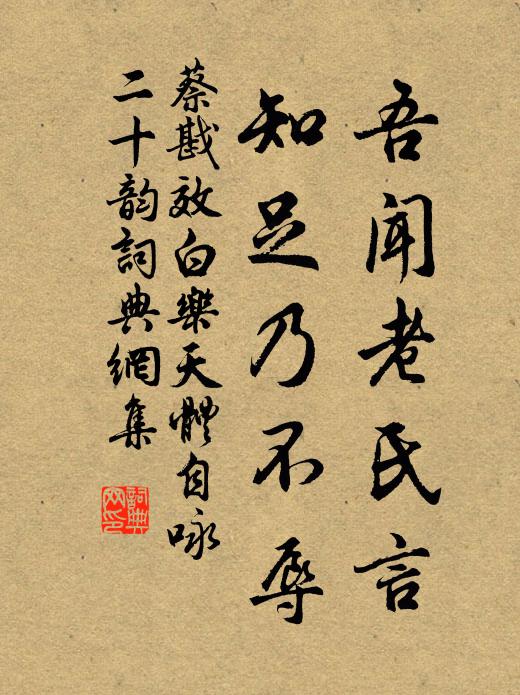 吾闻老氏言
知足乃不辱
蔡戡效白樂天體自咏
二十韵詞典網集
詞典
网印